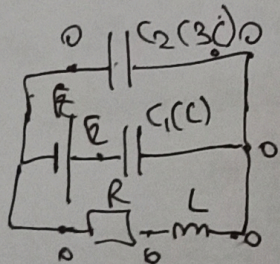 0 C₂(3C) 0
E
E C₁(C)
0
R L
0 0 0